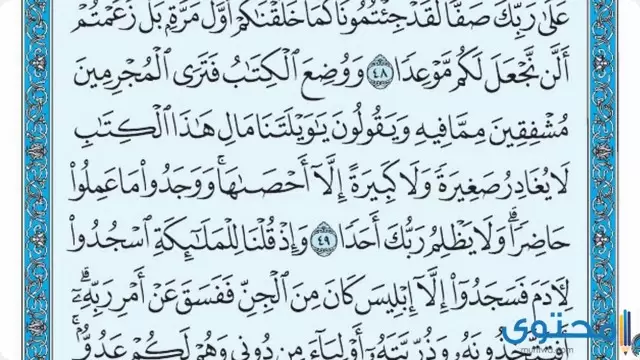 عَلَىٰ رَبِّكَ صَفًّا لَّقَدْ جِئْتُمُونَا كَمَا خَلَقْنَٰكُمْ أَوَّلَ مَرَّةٍۭ بَلْ زَعَمْتُمْ
أَلَّن نَّجْعَلَ لَكُم مَّوْعِدًا ٤٨ وَوُضِعَ ٱلْكِتَٰبُ فَتَرَى ٱلْمُجْرِمِينَ
مُشْفِقِينَ مِمَّا فِيهِ وَيَقُولُونَ يَٰوَيْلَتَنَا مَالِ هَٰذَا ٱلْكِتَٰبِ
لَا يُغَادِرُ صَغِيرَةً وَلَا كَبِيرَةً إِلَّآ أَحْصَىٰهَا ۚ وَوَجَدُوا۟ مَا عَمِلُوا۟
حَاضِرًا ۗ وَلَا يَظْلِمُ رَبُّكَ أَحَدًا ٤٩ وَإِذْ قُلْنَا لِلْمَلَٰٓئِكَةِ ٱسْجُدُوا۟
لِءَادَمَ فَسَجَدُوٓا۟ إِلَّآ إِبْلِيسَ كَانَ مِنَ ٱلْجِنِّ فَفَسَقَ عَنْ أَمْرِ رَبِّهِۦٓ ۗ
وَذُرِّيَّتَهُۥٓ أَوْلِيَآءَ مِن دُونِى وَهُمْ لَكُمْ عَدُوٌّۢ ۚ
محتوى